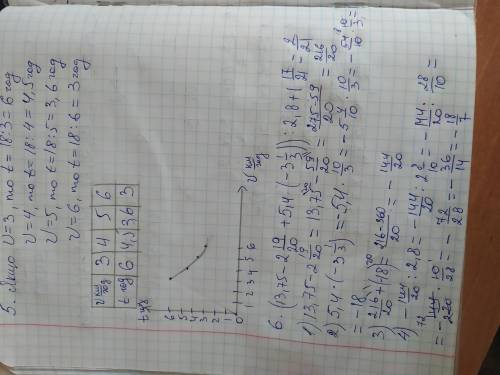 5. Якщо υ=3, то t=18:3=6 год
υ=4, то t=18:4=4,5 год
υ=5, то t=18:5=3,6 год
υ=6, то t=18:6=3 год
υ км/год 3 4 5 6
t год 6 4,5 3,6 3
t год
6
5
4
3
2
1
0 1 2 3 4 5 6 υ км/год
6. (13,75-2 19/20+5,4·(-3 1/3)):2,8+1 17/21=2/21
1) 13,75-2 19/20=13,75-59/20=275-59/20=216/20
2) 5,4·(-3 1/3)=5,4·10/3=-5 4/10·10/3=-54/10·10/3=
=-18
3) 216/20+(-18)=216-360/20=-144/20
4) -144/20:2,8=-144/20:2 8/10=-144/20:28/10=
=-144/20·10/28=-72/28=-36/14=-18/7